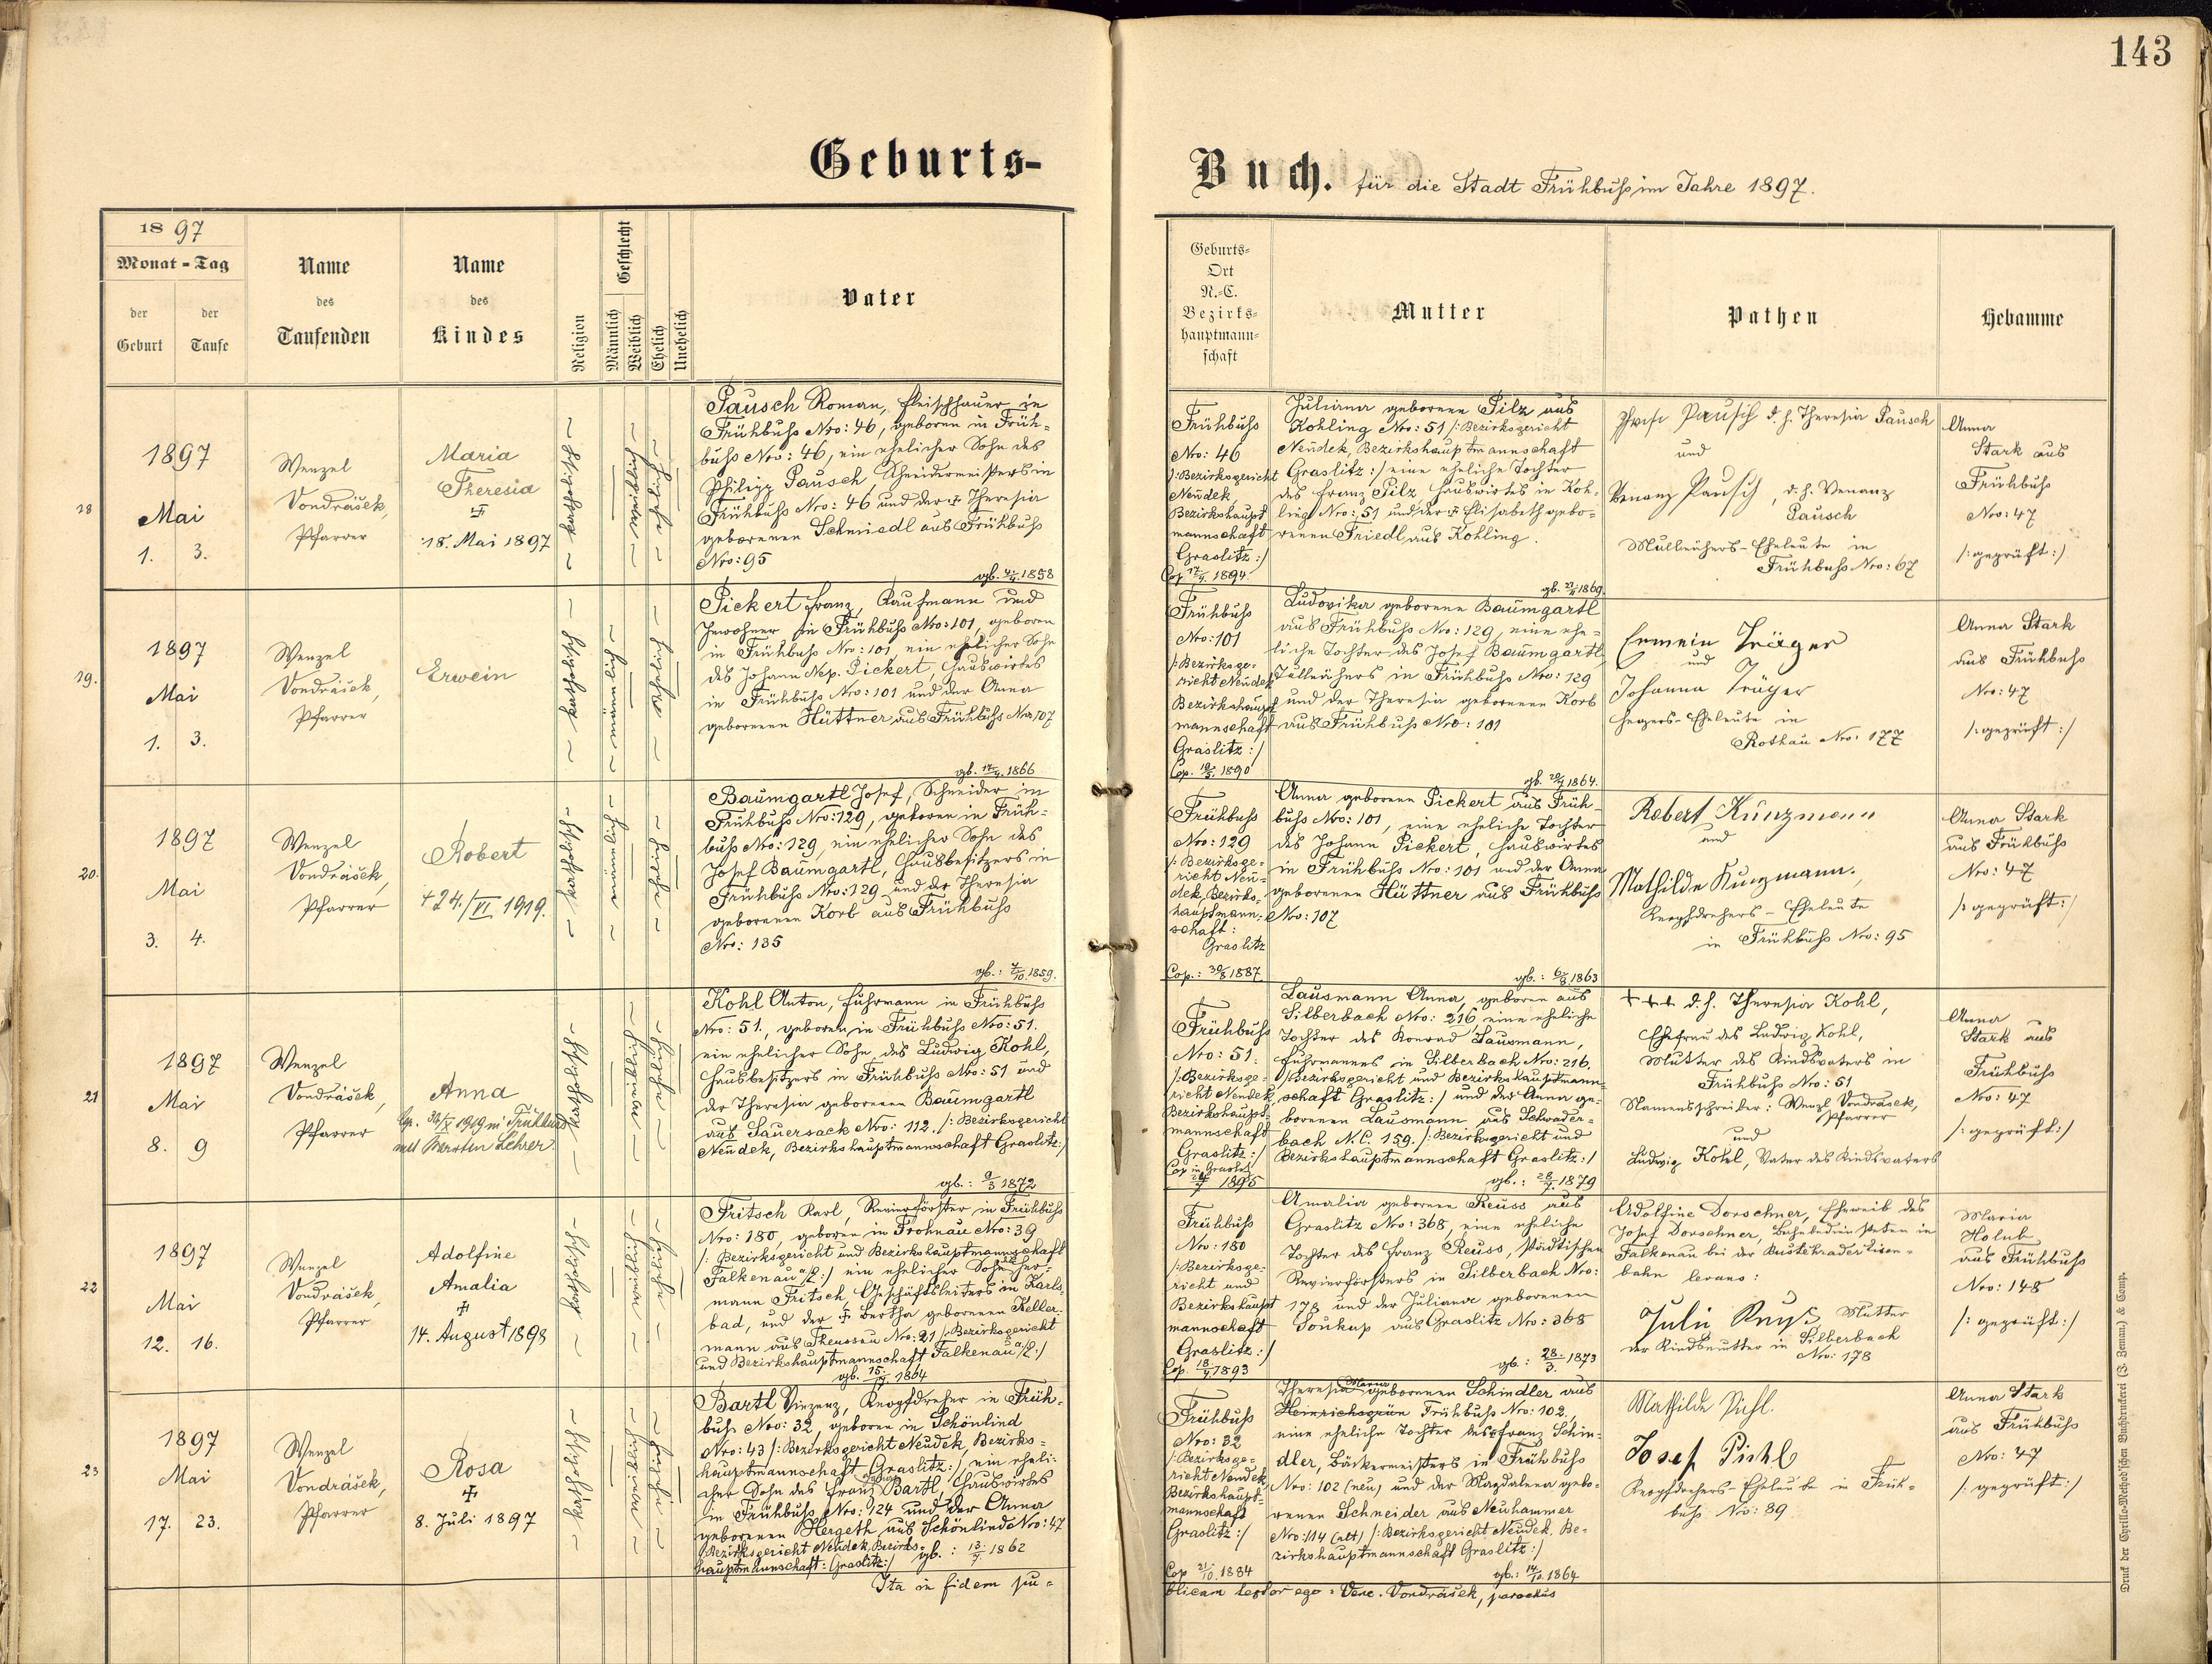 143
Geburts-
Buch. für die Stadt Frühbuß im Jahre 1897.
1897
Monat - Tag
der Geburt
der Taufe
Name des Taufenden
Name des Kindes
Religion
Geschlecht
Männlich
Weiblich
Ehelich
Unehelich
Vater
Geburts-
Ort
N.-C.
Bezirks-
hauptmann-
schaft
Mutter
Pathen
Hebamme
18
1897
Mai
1. 3.
Wenzel
Vondrášek,
Pfarrer
Maria
Theresia
✠
18. Mai 1897
katholisch
weiblich
ehelich
Pausch Roman, Fleischhauer in
Frühbuß Nro: 46, geboren in Früh-
buß Nro: 46, ein ehelicher Sohn des
Philipp Pausch, Schneidermeisters in
Frühbuß Nro: 46 und der ✠ Theresia
geborenen Schmiedl aus Frühbuß
Nro: 95
Frühbuß
Nro: 46
/: Bezirksgericht
Neudek,
Bezirkshaupt
mannschaft
Graslitz :/
1894
Juliana geborene Pilz aus
Kohling Nro: 51 /: Bezirksgericht
Neudek, Bezirkshauptmannschaft
Graslitz :/ eine eheliche Tochter
des Franz Pilz, Hauswirtes in Koh-
ling Nro: 51 und der ✠ Elisabeth gebo-
renen Friedl aus Kohling.
Pausch d. h. Theresia Pausch
und
Venanz Pausch, d. h. Venanz
Pausch
Eheleute in
Frühbuß Nro: 67
Anna
Stark aus
Frühbuß
Nro: 47
/: geprüft :/
19.
1897
Mai
1. 3.
Wenzel
Vondrášek,
Pfarrer
Erwein
katholisch
männlich
ehelich
gb. 1858
Pickert Franz, Kaufmann und
Inwohner in Frühbuß Nro: 101, geboren
in Frühbuß Nro: 101, ein ehelicher Sohn
des Johann Nep. Pickert, Hauswirtes
in Frühbuß Nro: 101 und der Anna
geborenen Hüttner aus Frühbuß Nro 107
Frühbuß
Nro: 101
/: Bezirksge-
richt Neudek
Bezirkshaupt
mannschaft
Graslitz :/
Cop. 1890
gb. 1869.
Ludovika geborene Baumgartl
aus Frühbuß Nro: 129, eine ehe-
liche Tochter des Josef Baumgartl,
in Frühbuß Nro: 129
und der Theresia geborenen Korb
aus Frühbuß Nro: 101
Erwein Träger
und
Johanna Träger
Hegers-Eheleute in
Rothau Nro. 177
Anna Stark
aus Frühbuß
Nro: 47
/: geprüft :/
20.
1897
Mai
3. 4.
Wenzel
Vondrášek,
Pfarrer
Robert
+ 24./VI 1919.
katholisch
männlich
ehelich
gb. 1866
Baumgartl Josef, Schneider in
Frühbuß Nro: 129, geboren in Früh-
buß Nro: 129, ein ehelicher Sohn des
Josef Baumgartl, Hausbesitzers in
Frühbuß Nro: 129 und der Theresia
geborenen Korb aus Frühbuß
Nro: 135
Frühbuß
Nro: 129
/: Bezirksge-
richt Neu-
dek, Bezirks-
hauptmann-
schaft:
Graslitz
Cop.: 30/8 1887
gb. 1864.
Anna geborene Pickert aus Früh-
buß Nro: 101, eine eheliche Tochter
des Johann Pickert, Hauswirtes
in Frühbuß Nro: 101 und der Anna
geborenen Hüttner aus Frühbuß
Nro: 107
Robert Künzmann
und
Mathilde Kunzmann.,
Knopfdrehers-Eheleute
in Frühbuß Nro: 95
Anna Stark
aus Frühbuß
Nro: 47
/: geprüft :/
21
1897
Mai
8. 9
Wenzel
Vondrášek,
Pfarrer
Anna
1919 in Frühbuß
mit Lehrer.
katholisch
weiblich
ehelich
gb.: 7/10 1859.
Kohl Anton, Fuhrmann in Frühbuß
Nro: 51., geboren in Frühbuß Nro: 51.
ein ehelicher Sohn des Ludwig Kohl,
Hausbesitzers in Frühbuß Nro: 51 und
der Theresia geborenen Baumgartl
aus Sauersack Nro: 112. /: Bezirksgericht
Neudek, Bezirkshauptmannschaft Graslitz :/
Frühbuß
Nro: 51.
/: Bezirksge-
richt Neudek
Bezirkshaupt-
mannschaft
Graslitz :/
Cop in Graslitz
1895
gb.: 1863
Lausmann Anna, geboren aus
Silberbach Nro: 216, eine eheliche
Tochter des Konrad Lausmann,
Fuhrmannes in Silberbach Nro: 216.
/: Bezirksgericht und Bezirkshauptmann-
schaft Graslitz :/ und der Anna ge-
borenen Lausmann aus Schwader-
bach N.C. 159. /: Bezirksgericht und
Bezirkshauptmannschaft Graslitz :/
+++ d. h. Theresia Kohl,
Ehefrau des Ludwig Kohl,
Mutter des Kindsvaters in
Frühbuß Nro: 51
Namensschreiber: Wenzl Vondrášek,
Pfarrer
und
Ludwig Kohl, Vater des Kindsvaters
Anna
Stark aus
Frühbuß
Nro: 47
/: geprüft :/
22
1897
Mai
12. 16.
Wenzel
Vondrášek,
Pfarrer
Adolfine
Amalia
✠
14. August 1898
katholisch
weiblich
ehelich
gb.: 1872
Fritsch Karl, Revierförster in Frühbuß
Nro: 180, geboren in Frohnau Nro: 39
/: Bezirksgericht und Bezirkshauptmannschaft
Falkenau a/E :/ ein ehelicher Sohn des Her-
mann Fritsch, Geschäftsleiters in Karls-
bad, und der ✠ Bertha geborenen Keller-
mann aus Theussau Nro: 21 /: Bezirksgericht
und Bezirkshauptmannschaft Falkenau a/E :/
Frühbuß
Nro: 180
/: Bezirksge-
richt und
Bezirkshaupt
mannschaft
Graslitz :/
Cop. 1893
gb.: 1879
Amalia geborene Reuss aus
Graslitz Nro: 368, eine eheliche
Tochter des Franz Reuss, städtischen
Revierförsters in Silberbach Nro:
178 und der Juliana geborenen
Soukup aus Graslitz Nro: 368
Adolfine Dorschner, Eheweib des
Josef Dorschner, Bahnbediensteten in
Falkenau bei der Buschtehrader Eisen-
bahn
Juli Reuß, Mutter
der Kindsmutter in Silberbach
Nro: 178
Maria
Holub
aus Frühbuß
Nro: 148
/: geprüft :/
23
1897
Mai
17. 23.
Wenzel
Vondrášek,
Pfarrer
Rosa
✠
8. Juli 1897
katholisch
weiblich
ehelich
gb. 1864
Bartl Vinzenz, Knopfdreher in Früh-
buß Nro: 32, geboren in Schönlind
Nro: 43 /: Bezirksgericht Neudek, Bezirks-
hauptmannschaft Graslitz :/ ein eheli-
cher Sohn des Franz Bartl, Hauswirtes
in Frühbuß Nro: 124 und der Anna
geborenen Hergeth aus Schönlind Nro: 47
Bezirksgericht Neudek, Bezirks-
hauptmannschaft: Graslitz :/ gb.: 13/7 1862
Frühbuß
Nro: 32
/: Bezirksge-
richt Neudek,
Bezirkshaupt-
mannschaft
Graslitz :/
Cop 21/10. 1884
gb.: 28./3. 1873
Theresia Maria geborenen Schindler aus
Heinrichsgrün Frühbuß Nro: 102.
eine eheliche Tochter des Franz Schin-
dler, Bäckermeisters in Frühbuß
Nro: 102 (neu) und der Magdalena gebo-
renen Schneider aus Neuhammer
Nro: 114 (alt) /: Bezirksgericht Neudek, Be-
zirkshauptmannschaft Graslitz :/
gb.: 14/10. 1864
Mathilde Pichl.
Josef Pichl
Knopfdrehers-Eheleute in Früh-
buß Nro: 89
Anna Stark
aus Frühbuß
Nro: 47
/: geprüft :/
Ita in fidem pu-
blicam testor ego: Venc. Vondrášek, parochus
Druck der Cyrillo-Method'schen Buchdruckerei (J. Zeman) & Comp.